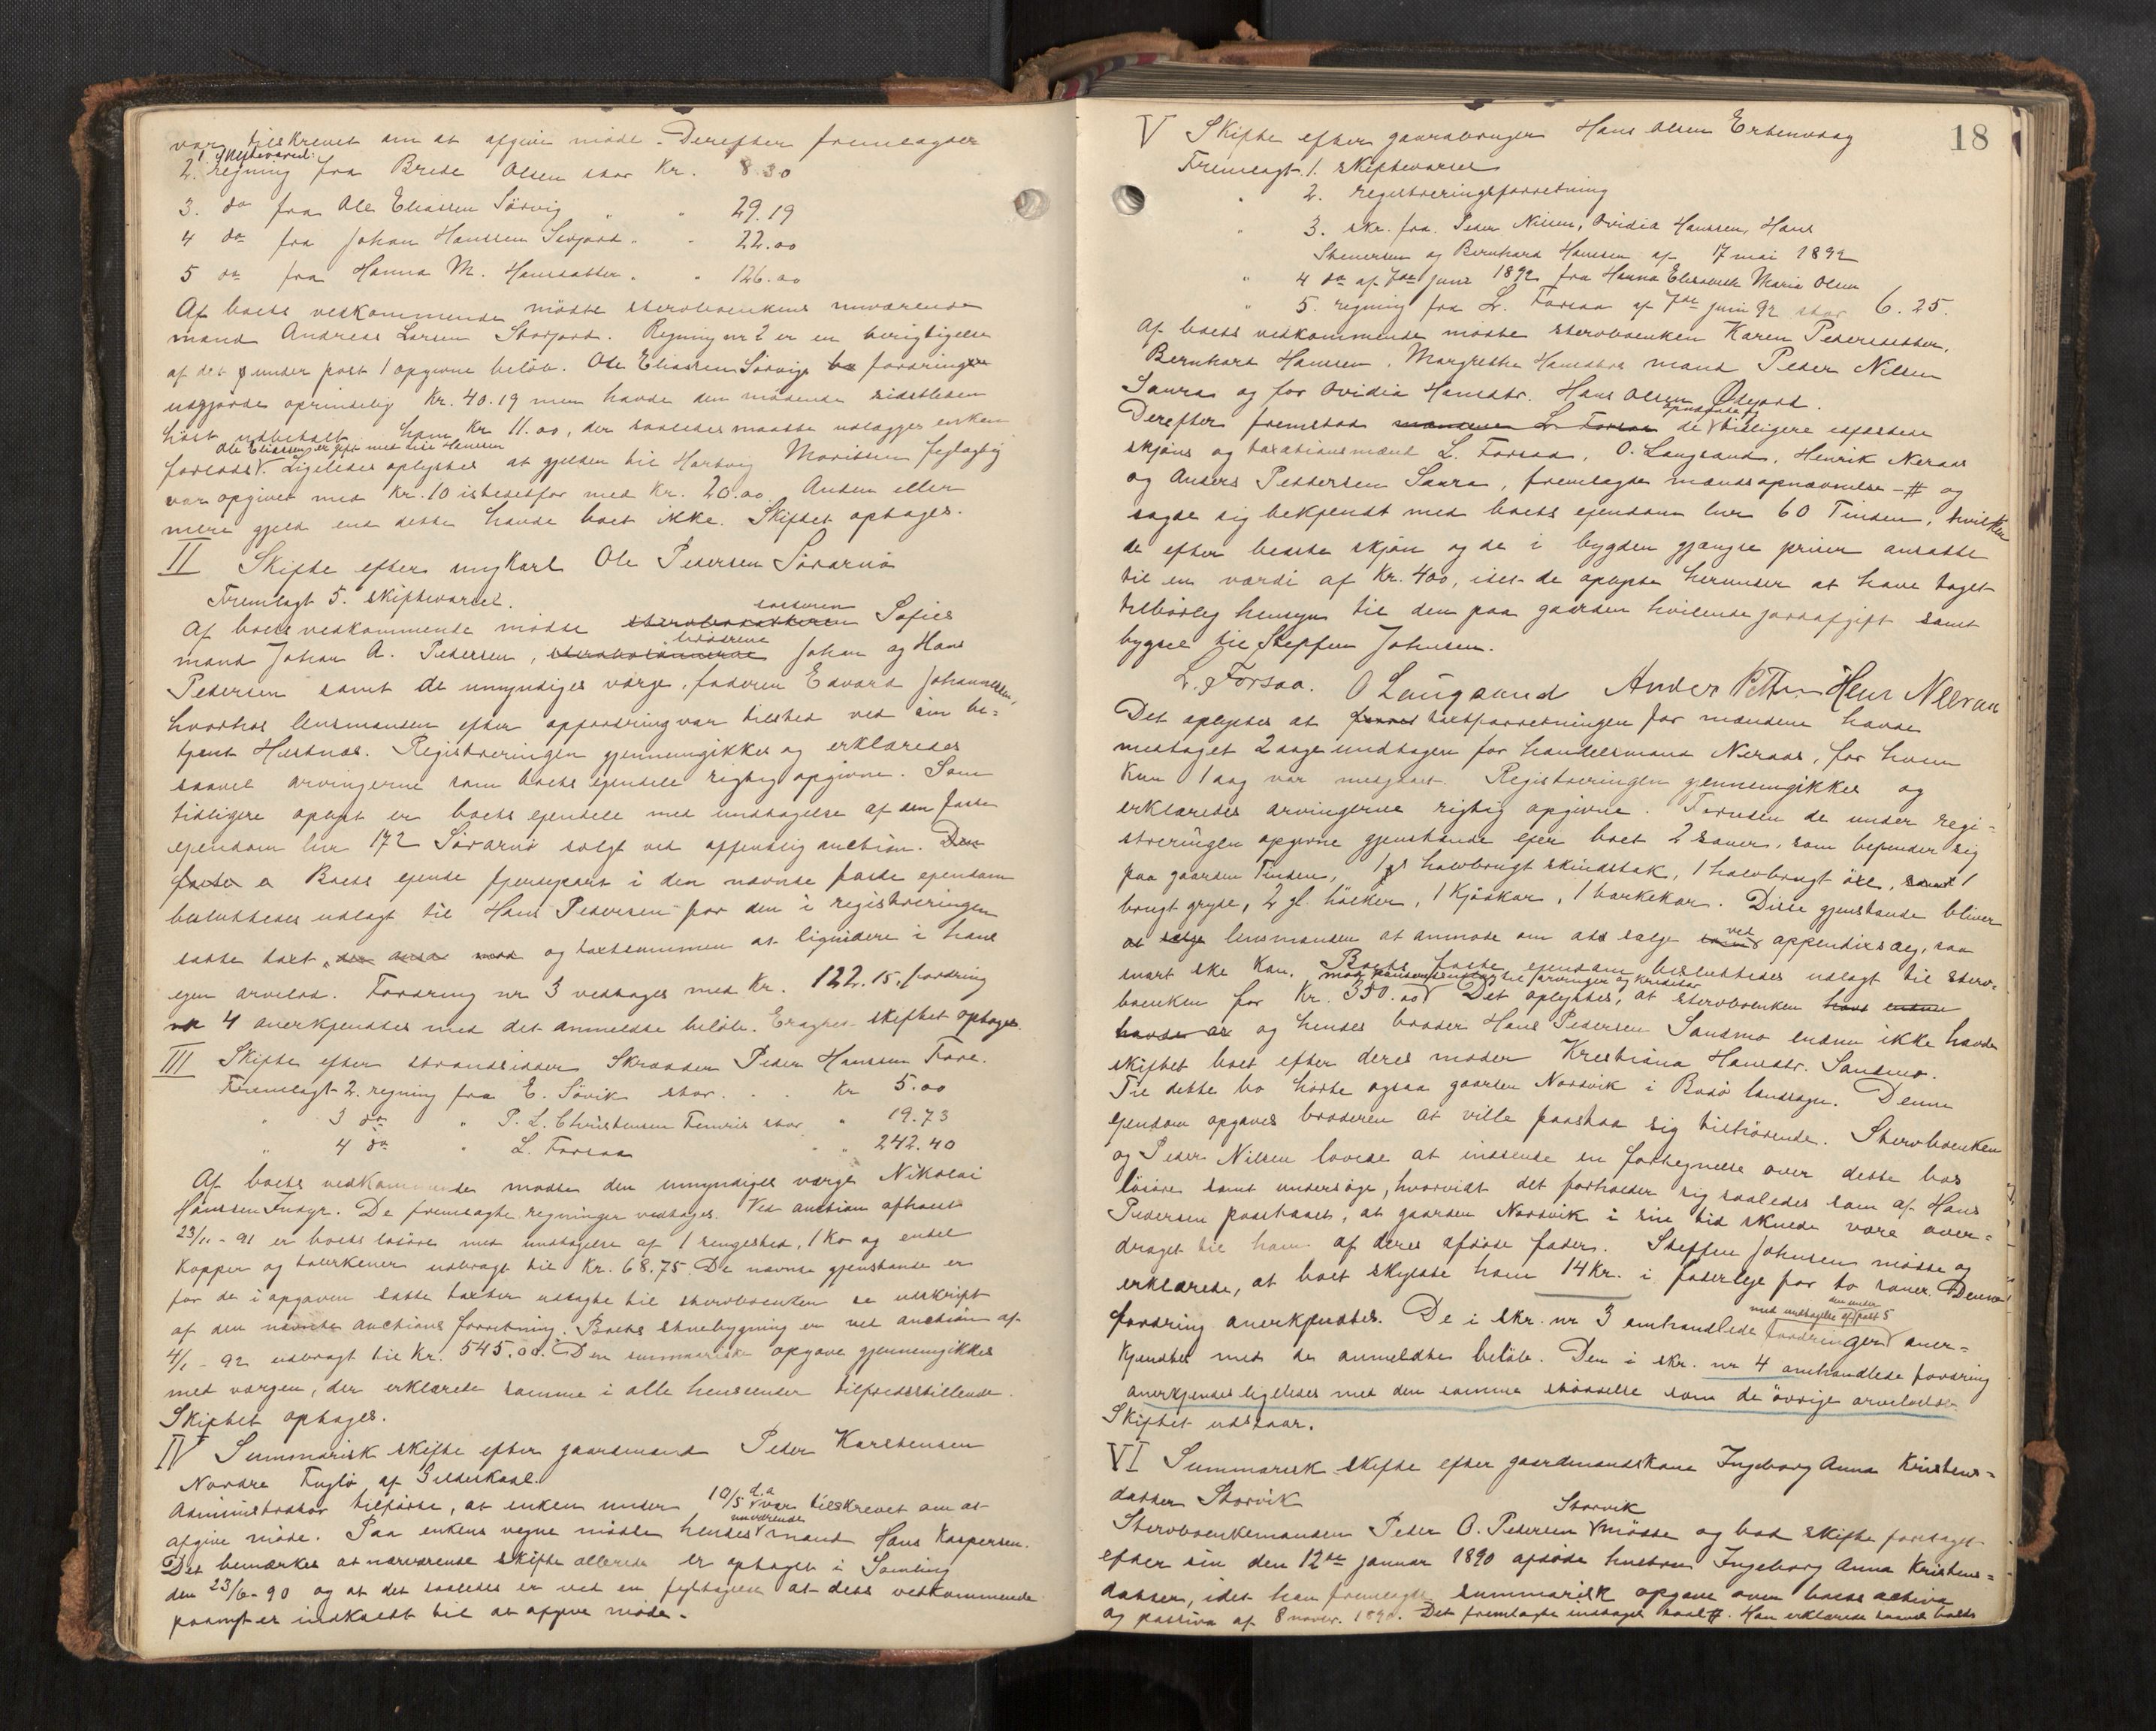 var tilskrevet om at afgive møde. Derefter fremlagdes
1. Skiftevarsel:
2. regning fra Brede Olsen stor Kr. 8.30
3. do fra Ole Eliassen Sörvig " " 29.19
4 do fra Johan Hanssen Storfjord " " 22.00
5 do fra Hanna M. Hansdatter " " 126.00
Af boets vedkommende mödte stervboenkens nuværende
mand Andreas Larsen Storfjord. Regning nr 2 er en berigtigelse
af det under post 1 opgivne beløb. Ole Eliassen Sörvigs fordringer
udgjorde oprindelig Kr. 40.19 men havde den mödende sidstleden
höst udbetalt ham Kr 11.00, der saaledes maatte udlægges enken
Ole Eliassen er gift med
forlods. Ligeledes oplystes at gjelden til Hartvig Moritsen feilagtig
var opgivet med Kr. 10 istedetfor med Kr. 20.00. Anden eller
mere gjeld end dette havde boet ikke. Skiftet optages.
II Skifte efter ungkarl Ole Pedersen Sörarnö
Fremlagt 5. skiftevarsel.
Af boets vedkommende mödte stervbodatteren søsteren Sofies
mand Johan A. Pedersen, brödrene Johan og Hans
Pedersen samt de umyndiges værge, faderen Edvard Johannessen,
hvorhos lensmanden efter opfordring var tilsted ved sin be-
tjent Hustnæs. Registreringen gjennemgikkes og erklæredes
saavel arvingerne som boets eiendele rigtig opgivne. Som
tidligere oplyst er boets eiendele med undtagelse af den faste
eiendom lnr 172 Sörarnö solgt ved offentlig auction. Den
faste e Boets eiende fjerdepart i den nævnte faste eiendom
besluttedes udlagt til Hans Pedersen for den i registreringen
satte taxt, og taxtsummen at liquidere i hans
egen arvelod. Fordring nr 3 vedtages med Kr. 122.15, fordring
nr 4 anerkjendtes med det anmeldte beløb. Eragtet skiftet optages.
III Skifte efter strandsidder Skrædder Peder Hanssen Fore.
Fremlagt 2. regning fra E. Sövik stor . . Kr 5.00
" 3 do " P. L. Christensen Femris stor " 19.73
" 4 do " L. Forsaa " " 242.40
Af boets vedkommende mödte den umyndiges værge Nikolai
Hanssen Indyr. De fremlagte regninger vedtages. Ved auction afholdt
23/11 - 91 er boets løsöre med undtagelse af 1 sengested, 1 Ko og endel
Kopper og talerkener udbragt til Kr. 68.75. De nævnte gjenstande er
for de i opgaven satte taxter udlagte til stervboenken se udskrift
af den nævnte auctionsforretning. Boets stuebygning er ved auction af
4/1 - 92 udbragt til Kr. 545.00. Den summariske opgave gjennemgikkes
med værgen, der erklærede samme i alle henseender tilfredsstillende.
Skiftet optages.
IV Summarisk skifte efter gaardmand Peder Karstensen
Nordre Fuglö af Gildeskaal.
Administrator tilförte, at enken under 10/5 d.a var tilskrevet om at
afgive möde. Paa enkens vegne mödte hendes nuværende mand Hans Kaspersen.
Det bemærkes at nærværende skifte allerede er optaget i Samling
den 23/6 - 90 og at det saaledes er ved en feiltagelse at dets vedkommende
paanyt er indkaldt til at afgive möde.
18
V Skifte efter gaardbruger Hans Olsen Ertenvaag
Fremlagt 1. skiftevarsel
" 2. registreringsforretning
" 3. skr. fra Peder Nilsen, Ovidia Hanssen, Hans
Steensen og Bernhard Hanssen af 17 mai 1892
" 4 do af 7de juni 1892 fra Hanna Elisabeth Maria Olsen
" 5. regning fra L. Forsaa af 7de juni 92 stor 6.25.
Af boets vedkommende mödte stervboenken Karen Pedersdatter,
Bernhard Hanssen, Margrethe Hansdtrs mand Peder Nilsen
Saura og for Ovidia Hansdtr. Hans Olsen
Derefter fremstod manden L. Forsaa de tidligere edfæstede
skjöns og taxationsmænd L. Forsaa, O. Langsand, Henrik Neraas
og Anders Pettersen Saura, fremlagde mandsopnævnelse - # og
sagde sig bekjendt med boets eiendom lnr 60 Tinden, hvilken
de efter bedste skjön og de i bygden gjængse priser ansatte
til en værdi af Kr. 400, idet de oplyste herunder at have taget
tilbörlig hensyn til den paa gaarden hvilende jordafgift samt
bygsel til Steffen Johnsen.
L. Forsaa. O Laugsand Anders Petters Henr Neeraas
Det oplystes at taxtforretningen for mændene havde
medtaget 2 dage undtagen for handelsmand Neraas, for hvem
kun 1 dag var medgaaet. Registreringen gjennemgikkes og
erklæredes arvingerne rigtig opgivne. Foruden de under regi-
streringen opgivne gjenstande eier boet 2 sauer, som befinder sig
paa gaarden Tinden, 1 halvbrugt skindstak, 1 halvbrugt öxe, samt 1
brugt gryde, 2 gl. hölker, 1 Kjödkar, 1 barkekar. Disse gjenstande bliver
at sælge lensmanden at anmode om at sælge ved appendixsag, saa
snart ske kan. Boets faste eiendom besluttedes udlagt til sterv-
boenken for Kr. 350.00 Det oplystes, at stervboenken havt endnu
havde at og hendes broder Hans Pedersen Sandmo endnu ikke havde
skiftet boet efter deres moder Kristiana Hansdtr. Sandmo.
Til dette bo hörte ogsaa gaarden Nordvik i Bodö landsogn. Denne
eiendom opgaves broderen at ville paastaa sig tilhörende. Stervboenken
og Peder Nilsen lovede at indsende en fortegnelse over dette bos
lösöre samt undersöge, hvorvidt det forholder sig saaledes som af Hans
Pedersen paastaaet, at gaarden Nordvik i sin tid skulde være over-
draget til ham af deres afdöde fader. Steffen Johnsen mödte og
erklærede, at boet skyldte ham 14 Kr. i foderleje for to sauer. Denne
fordring anerkjendtes. De i skr. nr 3 omhandlede fordringer med undtagelse af den under post 5 aner-
kjendtes med de anmeldte beløb. Den i skr. nr 4 omhandlede fordring
anerkjendes ligeledes med den samme störrelse som de övrige arvelodder
Skiftet udstaar.
VI Summarisk skifte efter gaardmandskone Ingeborg Anna Kristens-
datter Storvik
Stervboenkemanden Peder O. Pedersen Storvik mödte og bad skifte foretaget
efter sin den 12te januar 1890 afdöde hustru Ingeborg Anna Kristens-
datter, idet han fremlagde summarisk opgave over boets activa
og passiva af 8 novbr. 1890. Det fremlagte indtages saal. #. Han erklærede saavel boets